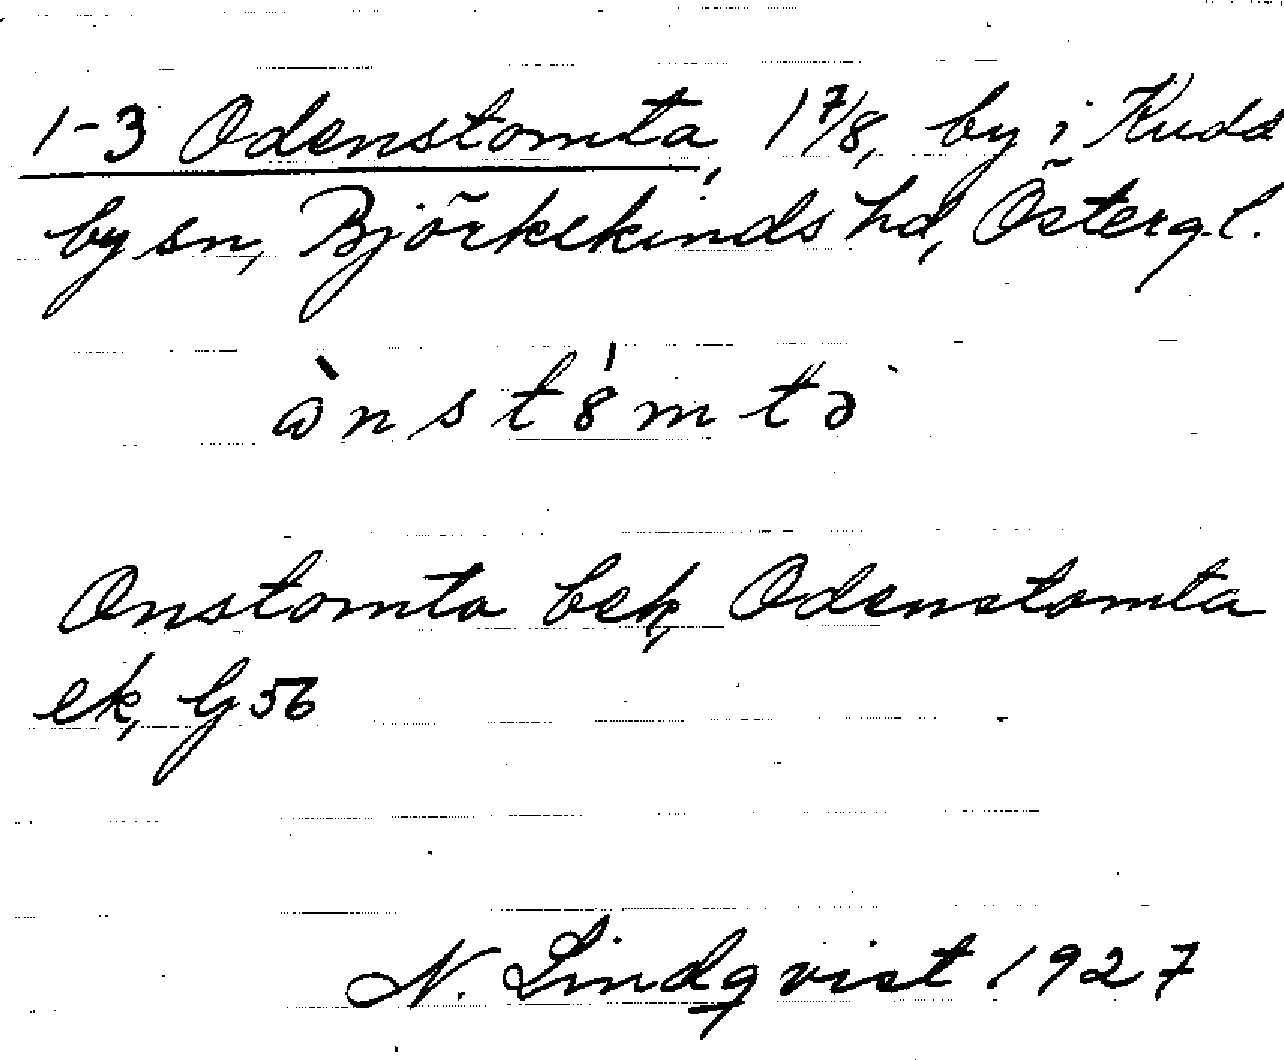 1-3 Odenstomta, 1 7/8, by i Kudd
by sn, Björkekinds hd, Östergl.
ὼnst8́mtə
Onstomta bek, Odenstomta
ek, G 56
N. Lindqvist 1927